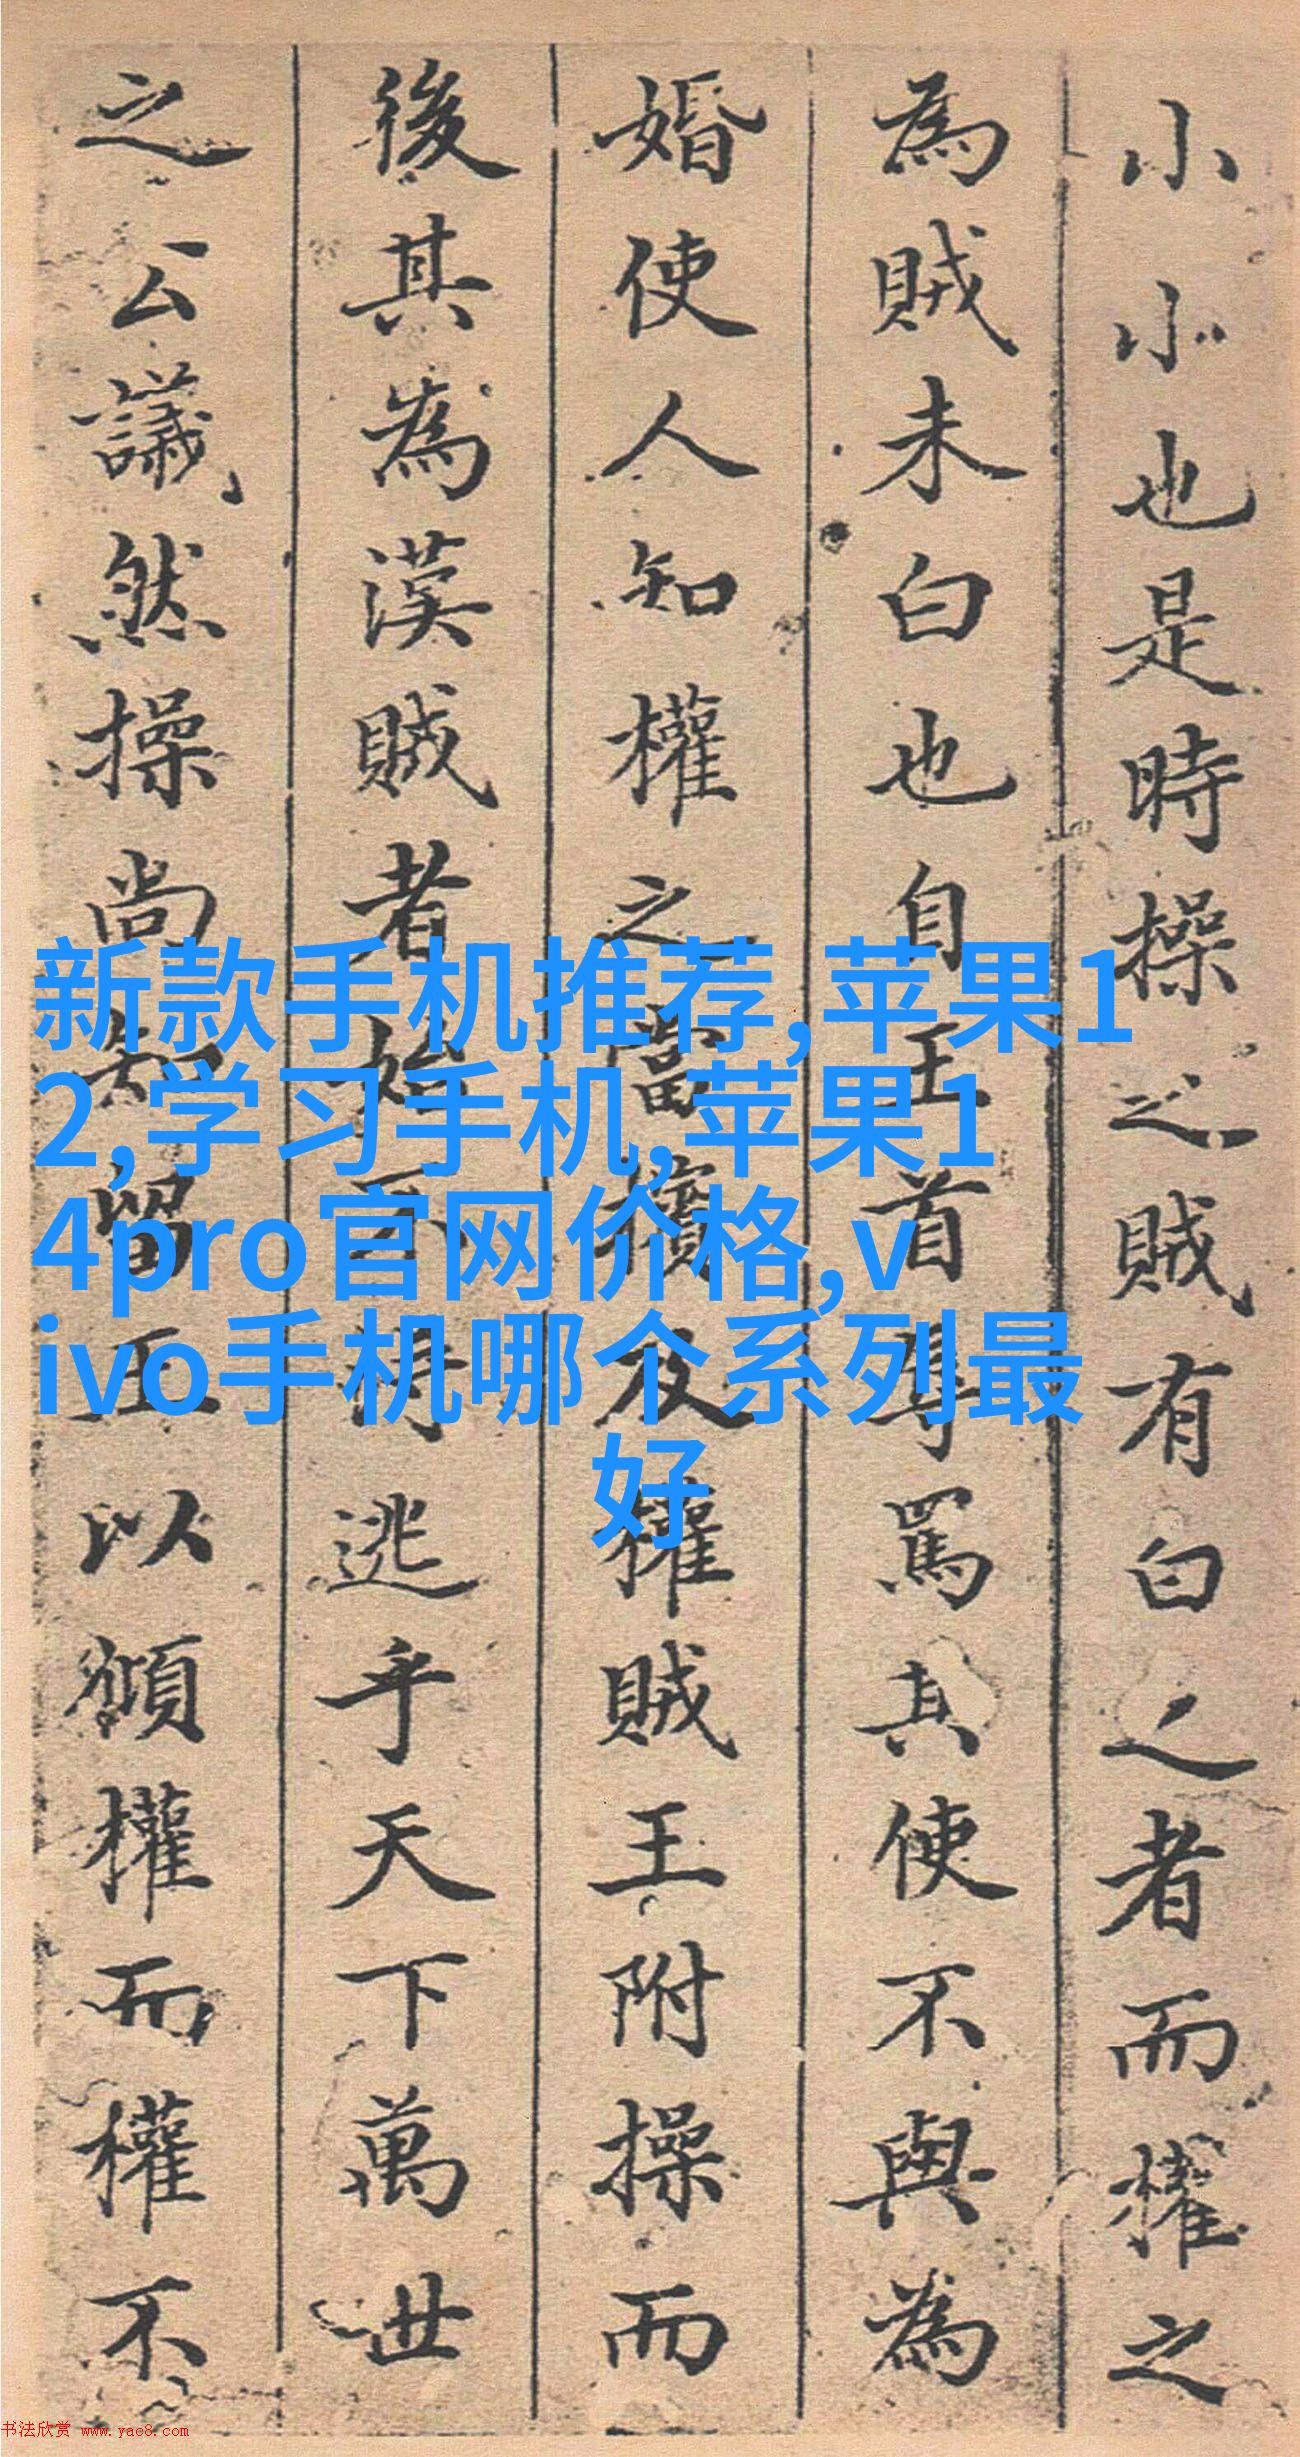 小小也是時操之賊有白之者而權之
為賊未白也自王首辱罵其使不與為
婚使人知權之當擯及權賊王附操而
後其為漢賊者始不得逃乎天下萬世
之公議然操尚知留王以權而權不
新款手机推荐,苹果1
2,学习手机,苹果1
4pro官网价格,v
ivo手机哪个系列最
好
书法欣赏 www.yac8.com